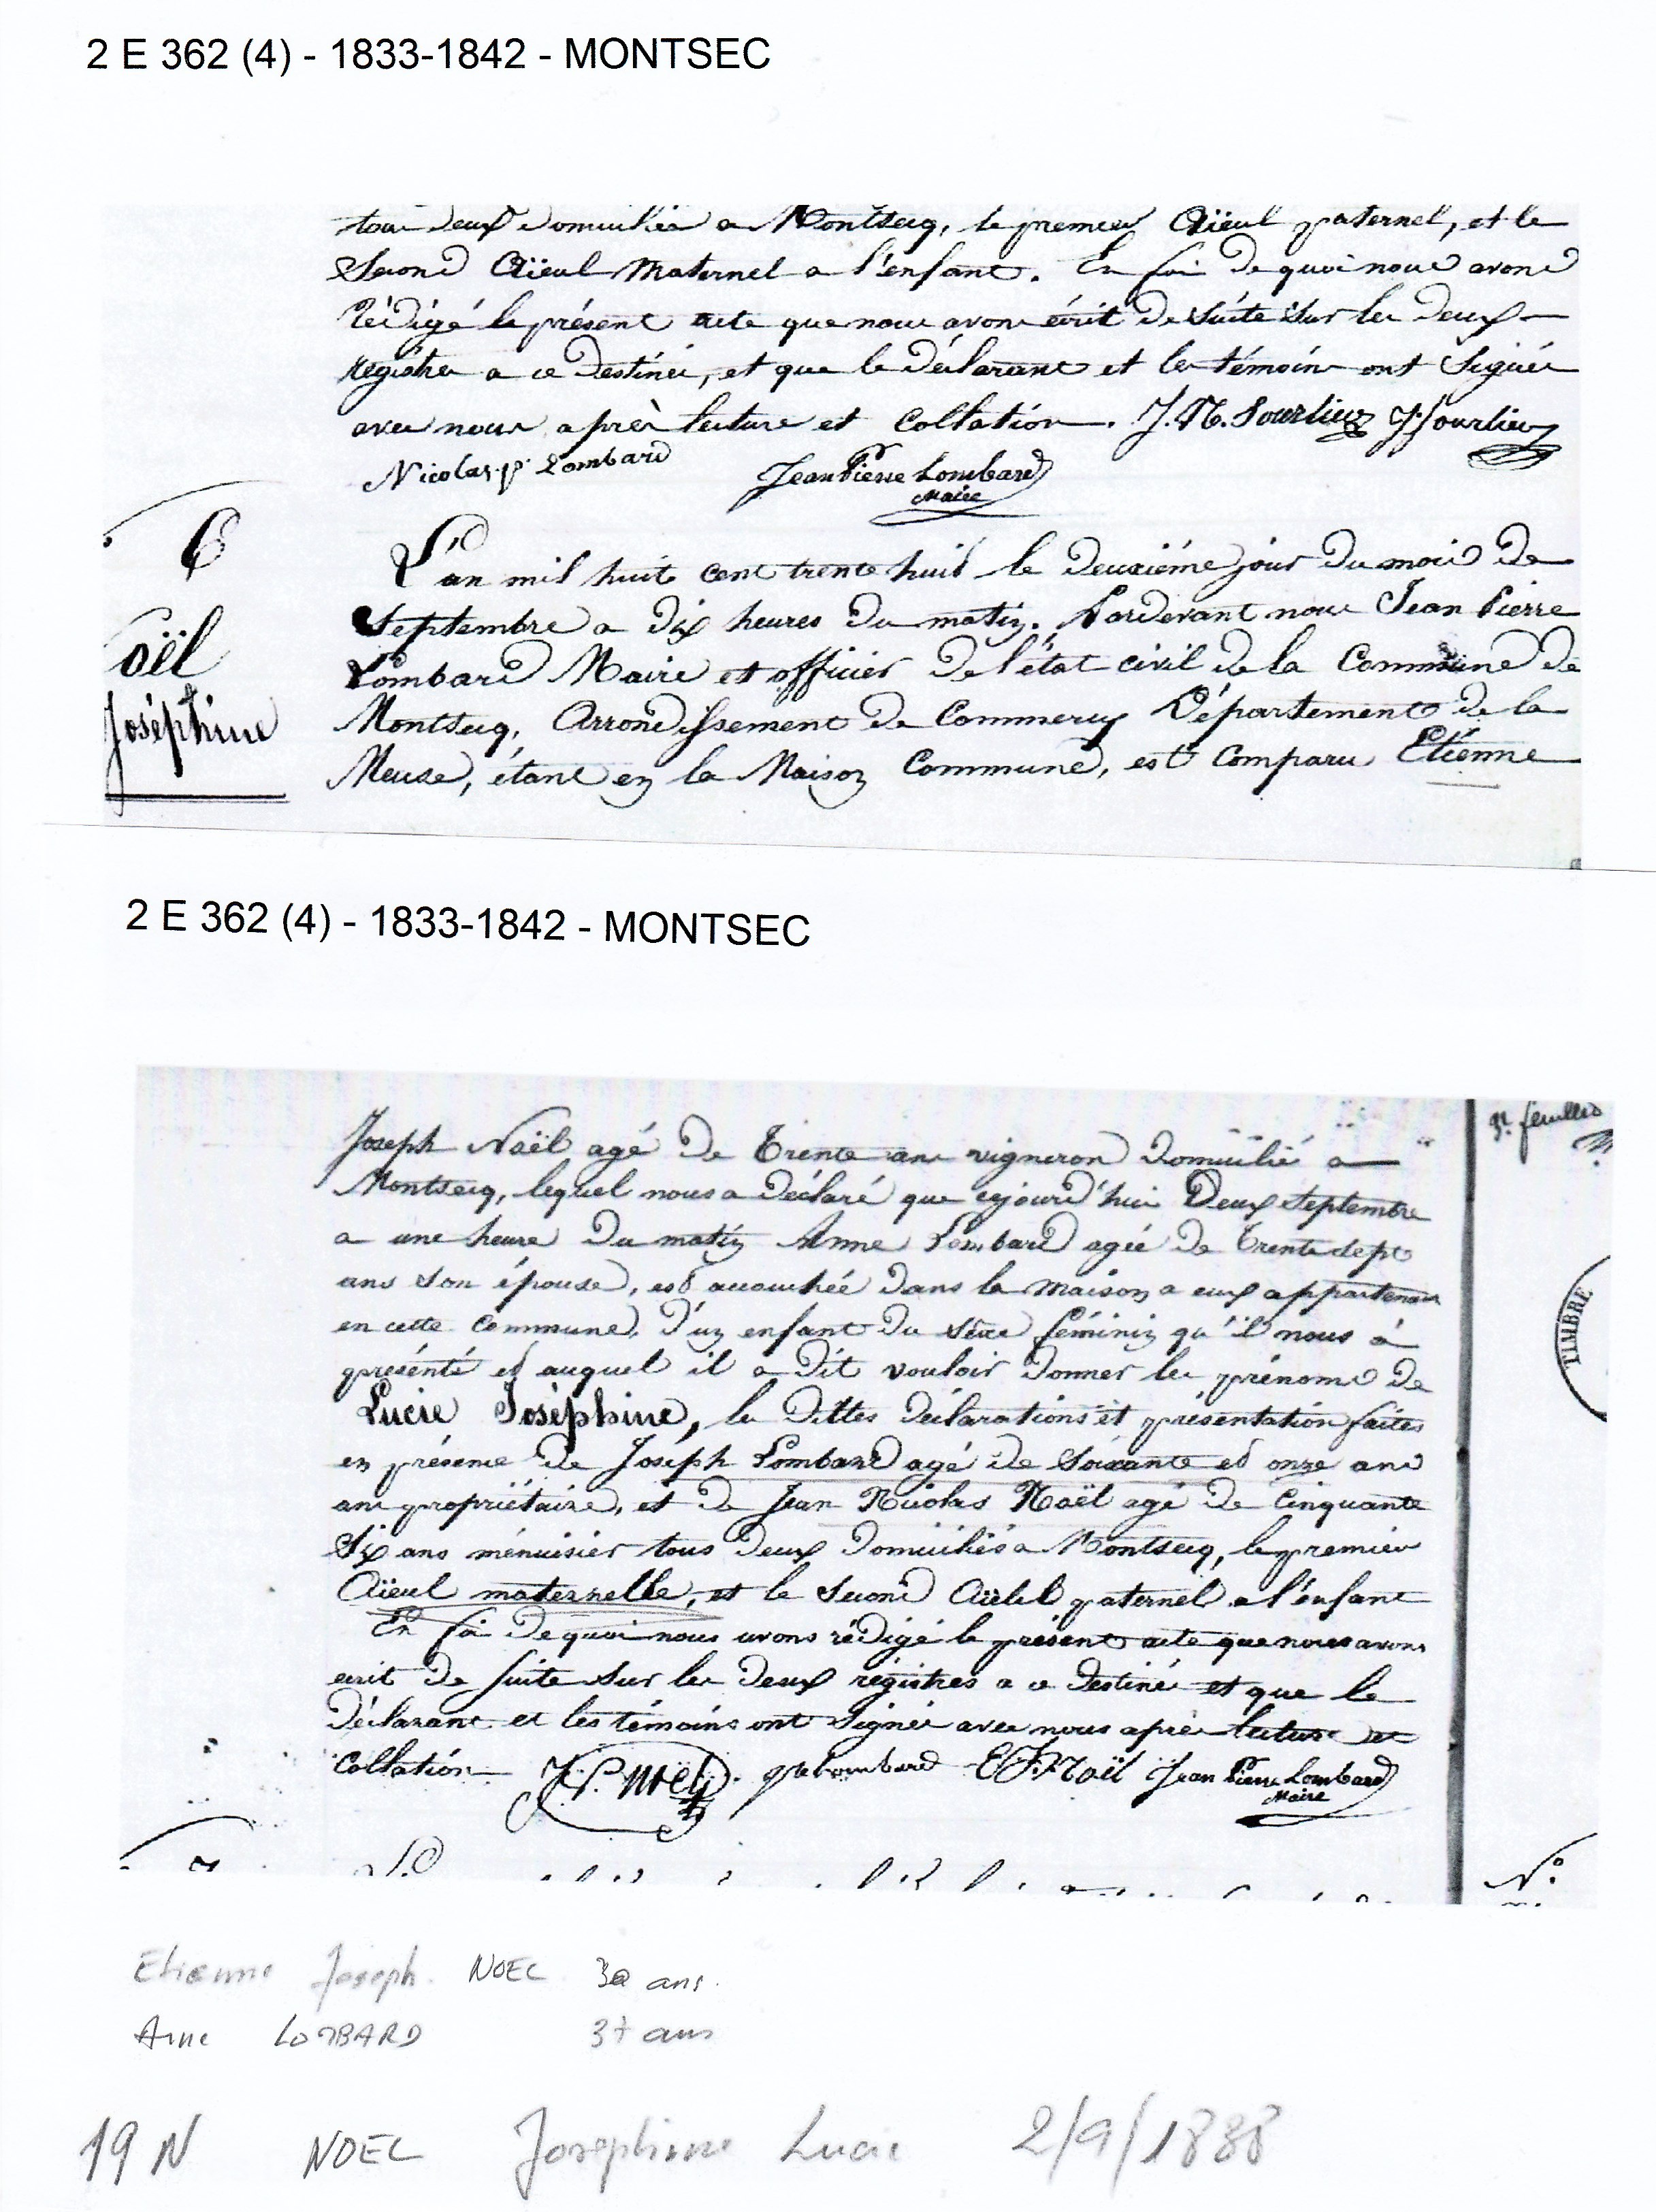 2 E 362 (4) - 1833-1842 - MONTSEC
tous deux domiciliés a Montsecq, le premier Aïeul paternel, et le
Second Aïeul Maternel a l'enfant. En foi de quoi nous avons
rédigé le présent acte que nous avons écrit de suite sur les deux
régistres a ce destinés, et que le déclarant et les témoins ont Signés
avec nous après lecture et Collation. J.N. Sourlieuz
Nicolas p. Lombard Jean Pierre Lombard
Maire
6
L'an mil huit cent trente huit le deuxiéme jour du mois de
Septembre a dix heures du matin. Pardevant nous Jean Pierre
oël
Lombard Maire et officier de l'état civil de la Commune de
Joséphine
Montsecq, Arrondissement de Commercy Département de la
Meuse, étant en la Maison Commune, est Comparu Etienne
2 E 362 (4) - 1833-1842 - MONTSEC
Joseph Noël agé de Trente ans vigneron domicilié a
Montsecq, lequel nous a déclaré que cejourd'hui Deux Septembre
a une heure du matin Anne Lombard agée de Trente sept
ans son épouse, est accouchée dans la maison a eux appartenant
en cette Commune, d'un enfant du sexe féminin qu'il nous à
présenté et auquel il a dit vouloir donner les prénoms de
Lucie Joséphine, les dittes déclarations et présentation faites
en présence de Joséph Lombard agé de Soixante et onze ans
ans propriétaire, et de Jean Nicolas Noël agé de Cinquante
Six ans ménuisier tous deux domiciliés a Montsecq, le premier
Aïeul maternelle, et le Second Aïeul paternel a l'enfant
En foi de quoi nous avons rédigé le présent acte que nous avons
écrit de suite sur les deux régistres a ce destiné et que le
Déclarant et les témoins ont Signés avec nous après lecture et
Collation J.N. Noël Lombard E J Noël Jean Pierre Lombard
Maire
TIMBRE
N°
Etienne Joseph NOEL 30 ans.
Anne LOMBARD 37 ans
19 N NOEL Josephine Lucie 2/9/1838